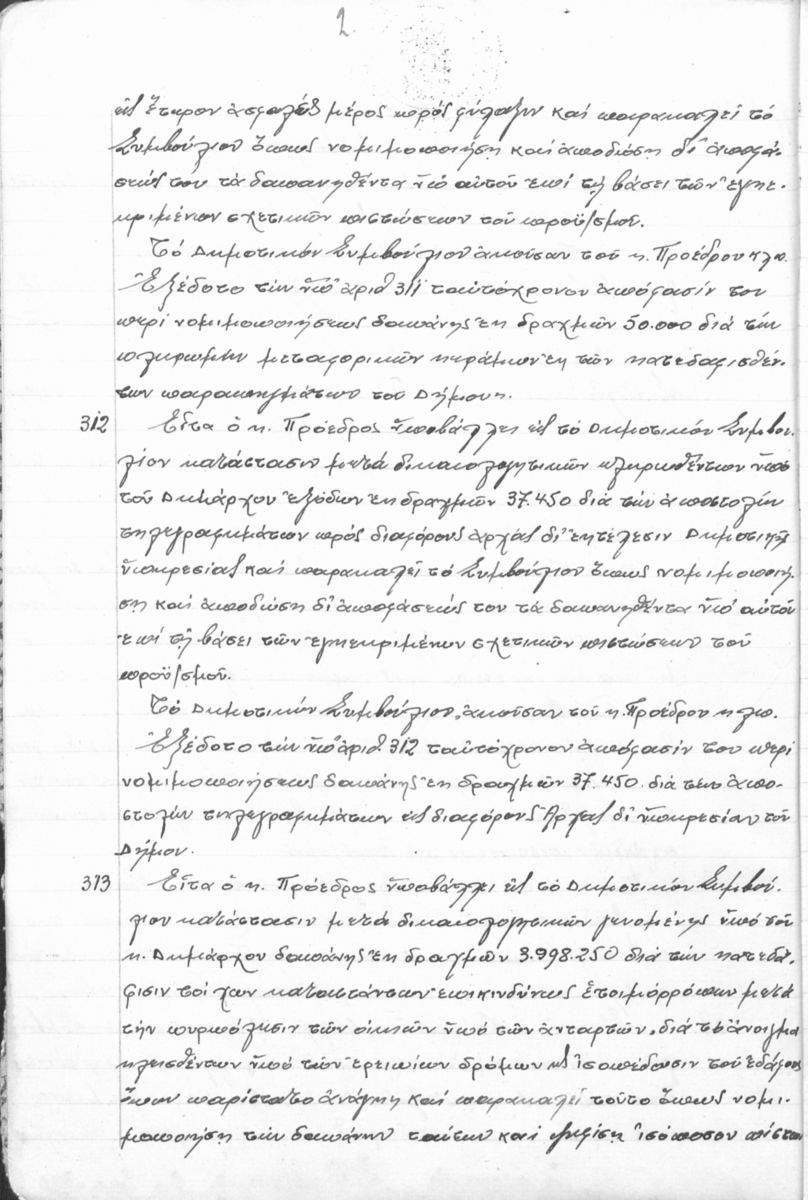 2
εἰς ἕτερον ἀσφαλές μέρος πρός φύλαξιν καί παρακαλεῖ τό
Συμβούλιον ὅπως νομιμοποιήσῃ καί ἀποδώσῃ δι' ἀποφά-
σεώς του τά δαπανηθέντα ὑπ' αὐτοῦ ἐπί τῇ βάσει τῶν ἐγκε-
κριμένων σχετικῶν πιστώσεων τοῦ προϋ/σμοῦ.
Τό Δημοτικόν Συμβούλιον ἀκοῦσαν τοῦ κ. Προέδρου κλπ.
Ἐξέδοτο τήν ὑπ' ἀριθ 311 ταὐτόχρονον ἀπόφασίν του
περί νομιμοποιήσεως δαπάνης ἐκ δραχμῶν 50.000 διά τήν
πληρωμήν μεταφορικῶν κεράμων ἐκ τῶν κατεδαφισθέν-
των παραπηγμάτων τοῦ Δήμου κ.
312 Εἶτα ὁ κ. Πρόεδρος ὑποβάλλει εἰς τό Δημοτικόν Συμβού-
λιον κατάστασιν μετά δικαιολογητικῶν πληρωθέντων ὑπό
τοῦ Δημάρχου ἐξόδων ἐκ δραχμῶν 37.450 διά τήν ἀποστολήν
τηλεγραφημάτων πρός διαφόρους ἀρχάς δι' ἐκτέλεσιν Δημοτικῆς
ὑπηρεσίας καί παρακαλεῖ τό Συμβούλιον ὅπως νομιμοποιή-
σῃ καί ἀποδώσῃ δι' ἀποφάσεώς του τά δαπανηθέντα ὑπ' αὐτοῦ
ἐπί τῇ βάσει τῶν ἐγκεκριμένων σχετικῶν πιστώσεων τοῦ
προϋ/σμοῦ.
Τό Δημοτικόν Συμβούλιον, ἀκοῦσαν τοῦ κ. Προέδρου κλπ.
Ἐξέδοτο τήν ὑπ' ἀριθ. 312 ταὐτόχρονον ἀπόφασίν του περί
νομιμοποιήσεως δαπάνης ἐκ δραχμῶν 37.450 διά τήν ἀπο-
στολήν τηλεγραφημάτων εἰς διαφόρους Ἀρχάς δι' ὑπηρεσίαν τοῦ
Δήμου.
313 Εἶτα ὁ κ. Πρόεδρος ὑποβάλλει εἰς τό Δημοτικόν Συμβού-
λιον κατάστασιν μετά δικαιολογητικῶν γενομένης ὑπό τοῦ
κ. Δημάρχου δαπάνης ἐκ δραχμῶν 3.998.250 διά τήν κατεδά-
φισιν τοίχων καταστάντων ἐπικινδύνως ἑτοιμόρρόπων μετά
τήν πυρπόλησιν τῶν οἰκιῶν ὑπό τῶν ἀνταρτῶν, διά τό ἄνοιγμα
κλεισθέντων ὑπό τῶν ἐρειπίων δρόμων καί ἰσοπέδωσιν τοῦ ἐδάφους
ὅπου παρίστατο ἀνάγκη καί παρακαλεῖ τοῦτο ὅπως νομι-
μοποιήσῃ τήν δαπάνην ταύτην καί ψηφίσῃ ἰσόποσον πίστω